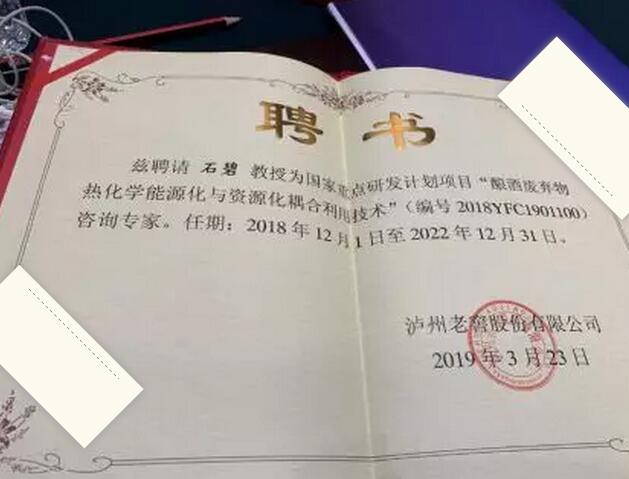 聘书
兹聘请 石碧 教授为国家重点研发计划项目“酿酒废弃物
热化学能源化与资源化耦合利用技术”（编号 2018YFC1901100）
咨询专家。任期：2018 年 12 月 1 日至 2022 年 12 月 31 日。
泸州老窖股份有限公司
2019 年 3 月 23 日